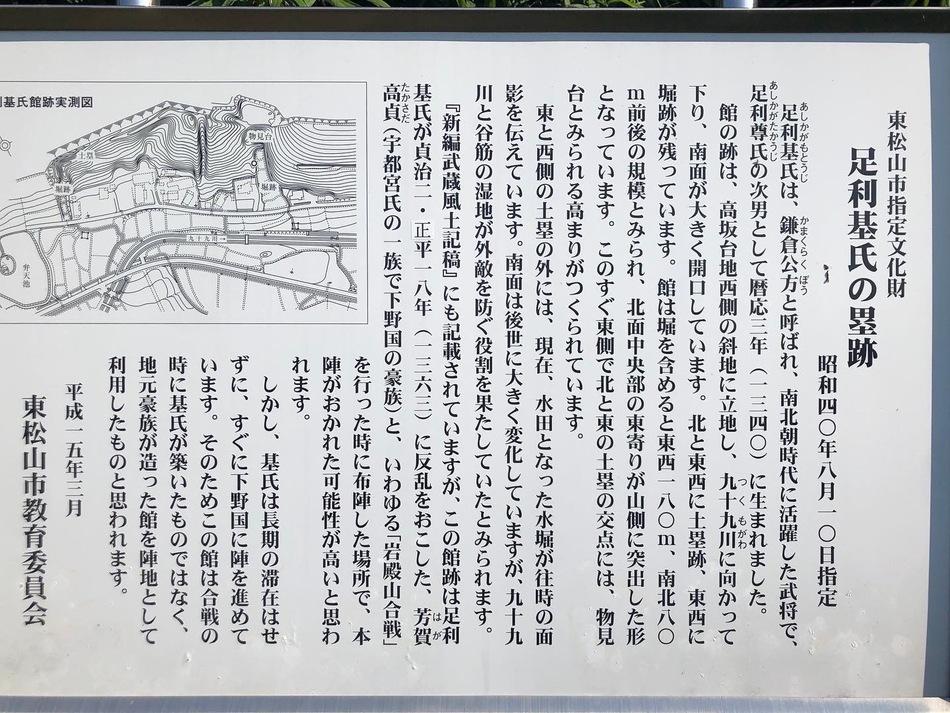 東松山市指定文化財
足利基氏の塁跡
昭和四〇年八月一〇日指定
足利基氏は、鎌倉公方と呼ばれ、南北朝時代に活躍した武将で、
あしかがもとうじ
かまくらくぼう
足利尊氏の次男として暦応三年(一三四〇)に生まれました。
あしかがたかうじ
館の跡は、高坂台地西側の斜地に立地し、九十九川に向かって
つくもがわ
下り、南面が大きく開口しています。北と東西に土塁跡、東西に
堀跡が残っています。館は堀を含めると東西一八〇m、南北八〇
m前後の規模とみられ、北面中央部の東寄りが山側に突出した形
となっています。このすぐ東側で北と東の土塁の交点には、物見
台とみられる高まりがつくられています。
東と西側の土塁の外には、現在、水田となった水堀が往時の面
影を伝えています。南面は後世に大きく変化していますが、九十九
川と谷筋の湿地が外敵を防ぐ役割を果たしていたとみられます。
『新編武蔵風土記稿』にも記載されていますが、この館跡は足利
基氏が貞治二・正平一八年(一三六三)に反乱をおこした、芳賀
はが
高貞(宇都宮氏の一族で下野国の豪族)と、いわゆる「岩殿山合戦」
たかさだ
を行った時に布陣した場所で、本
陣がおかれた可能性が高いと思わ
れます。
しかし、基氏は長期の滞在はせ
ずに、すぐに下野国に陣を進めて
います。そのためこの館は合戦の
時に基氏が築いたものではなく、
地元豪族が造った館を陣地として
利用したものと思われます。
平成一五年三月
東松山市教育委員会
基氏館跡実測図
物見台
土塁
堀跡
九十九川
弁天池